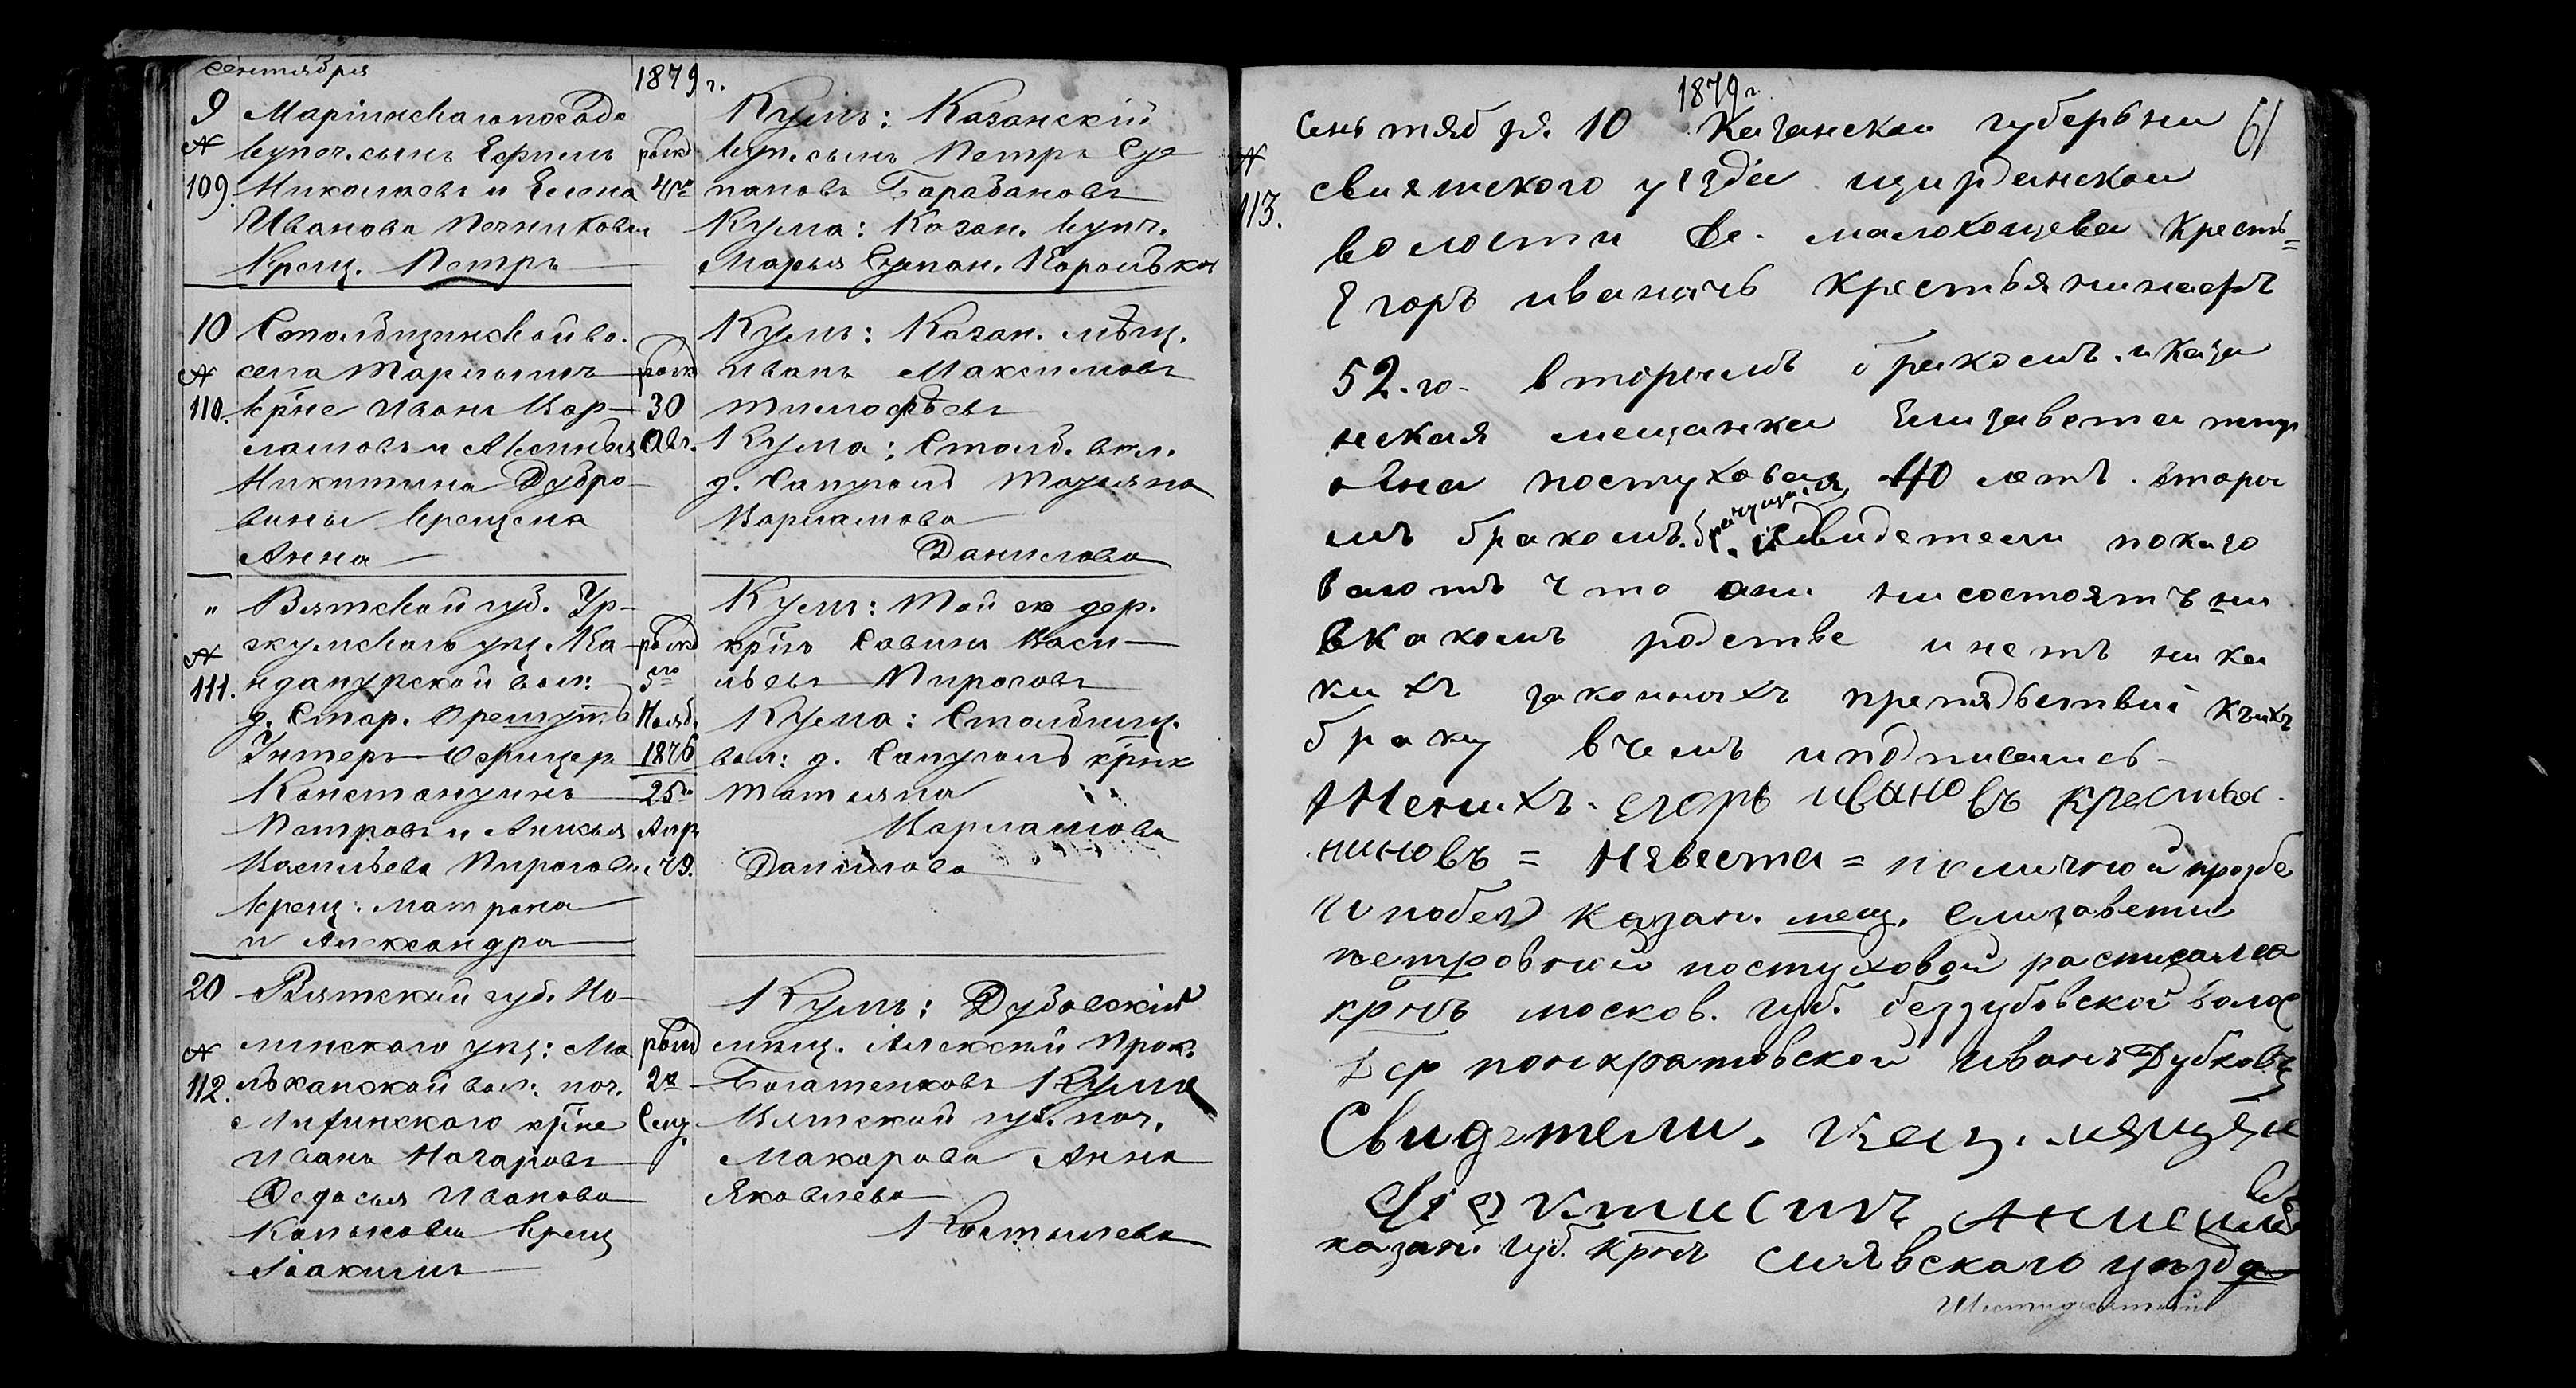 сентября
1879 г.
9 Марiинскаго посада
купеч. сынъ Ефимъ
Николаевъ и Елена
Иванова Печниковы
Крещ. Петръ
№ 109.
рожд 4го
Кумъ: Казанскiй
куп. сынъ Петръ Сте
пановъ Барабановъ
Кума: Казан. купч.
Марья Степан. Королькова
10 Столбищинской во.
села Тарлашъ
кр̃не Иванъ Вар-
ламовъ и Аксинья
Никитина Дубро-
вины крещена
Анна
№ 110.
рожд
30
Авг.
Кумъ: Казан. мѣщ.
Иванъ Максимовъ
тимофѣевъ
Кума: Столб. вол.
д. Сапуголь Татьяна
Варламова
Данилова
" Вятской губ. Ур-
жумскаго уѣз. Ко-
ндапурской вол:
д. Стар.
Унтеръ-офицеръ
Константинъ
Петровъ и Анисья
Васильева Пироговы
крещ: матрона
и Александра
№ 111.
рожд
5го
Нояб.
1876
25го
Апр
79.
Кумъ: Той же дер.
кр̃нъ Савинъ Васи-
льевъ Пироговъ
Кума: Столбищ.
вол: д. Сапуголь кр̃нк
Татьяна
Варламова
Данилова
20 Вятской губ. Но-
линскаго уѣз: Ма
лыканской вол: поч.
кр̃не
Иванъ Назаровъ
Федосья Иванова
Коньковы крещ
Iоакимъ
№ 112.
рожд
2го
Сент.
Кумъ: Дубовскiй
мѣщ. Алексѣй Прок.
Богатенковъ Кума
Вятской губ. поч.
Макарова Анна
Яковлева
Костылева
1879 г.
61
Сеньтября 10 Казанскои губерьни
№ 113.
свияшского уѣзда ширданскои
волости де. малохощева Кресть=
Егоръ иваначь
52.го- вторымъ бракомъ. и Каза
нская мещанка Елизавета петр
овна постухова 40 летъ. вторы
мъ бракомъ. свидетели показо
вают что они ни состоятъ ни
вкакомъ родстве и нетъ ника
кихъ законныхъ препядьствiй къихъ
браку вчемъ иподписались-
Женихъ. егоръ ивановъ крестья-
ниновъ = Нявеста = по личной прозбе
Казан. мещ. Елизавети
петровной постуховой росписался
кр̃нъ москов. губ. беззубовской волос
дер понкратовской иванъ Дубковъ
Свидетели. Каз. мящян
казан. губ. кр̃нъ Сиявского уѣзда
Шестидесятый